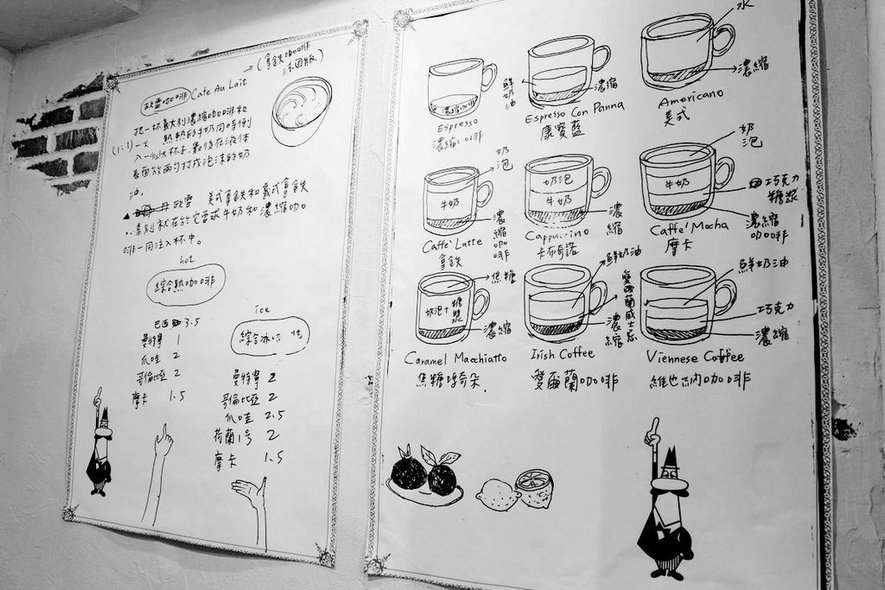 (拿鐵咖啡
法國版)
歐蕾咖啡 Cafe Au Lait
把一杯義大利濃縮咖啡和
(1:1)一大 熱熱的牛奶同時倒
入一個大杯子,最後在液体
表面放兩勺打成泡沫的奶
油。
▲ 歐蕾 美式拿鐵和義式拿鐵
差別就在於它要求牛奶和濃縮咖
啡一同注入杯中。
hot
綜合熱咖啡
巴西 3.5
曼特寧 1
爪哇 2
哥倫比亞 2
摩卡 1.5
ice
綜合冰咖啡
曼特寧 2
哥倫比亞 2
爪哇 2.5
荷蘭1号 2
摩卡 1.5
濃縮咖啡
Espresso
濃縮咖啡
鮮奶油
濃縮
Espresso Con Panna
康寶藍
水
濃縮
Americano
美式
奶泡
牛奶
濃縮咖啡
Caffe' Latte
拿鐵
奶泡
牛奶
濃縮
Cappuccino
卡布奇諾
奶泡
牛奶
巧克力
糖漿
濃縮
咖啡
Caffe' Mocha
摩卡
焦糖
奶泡+糖漿
濃縮
Caramel Macchiatto
焦糖瑪奇朵
鮮奶油
愛爾蘭威士忌
濃縮
Irish Coffee
愛爾蘭咖啡
鮮奶油
巧克力
濃縮
Viennese Coffee
維也納咖啡